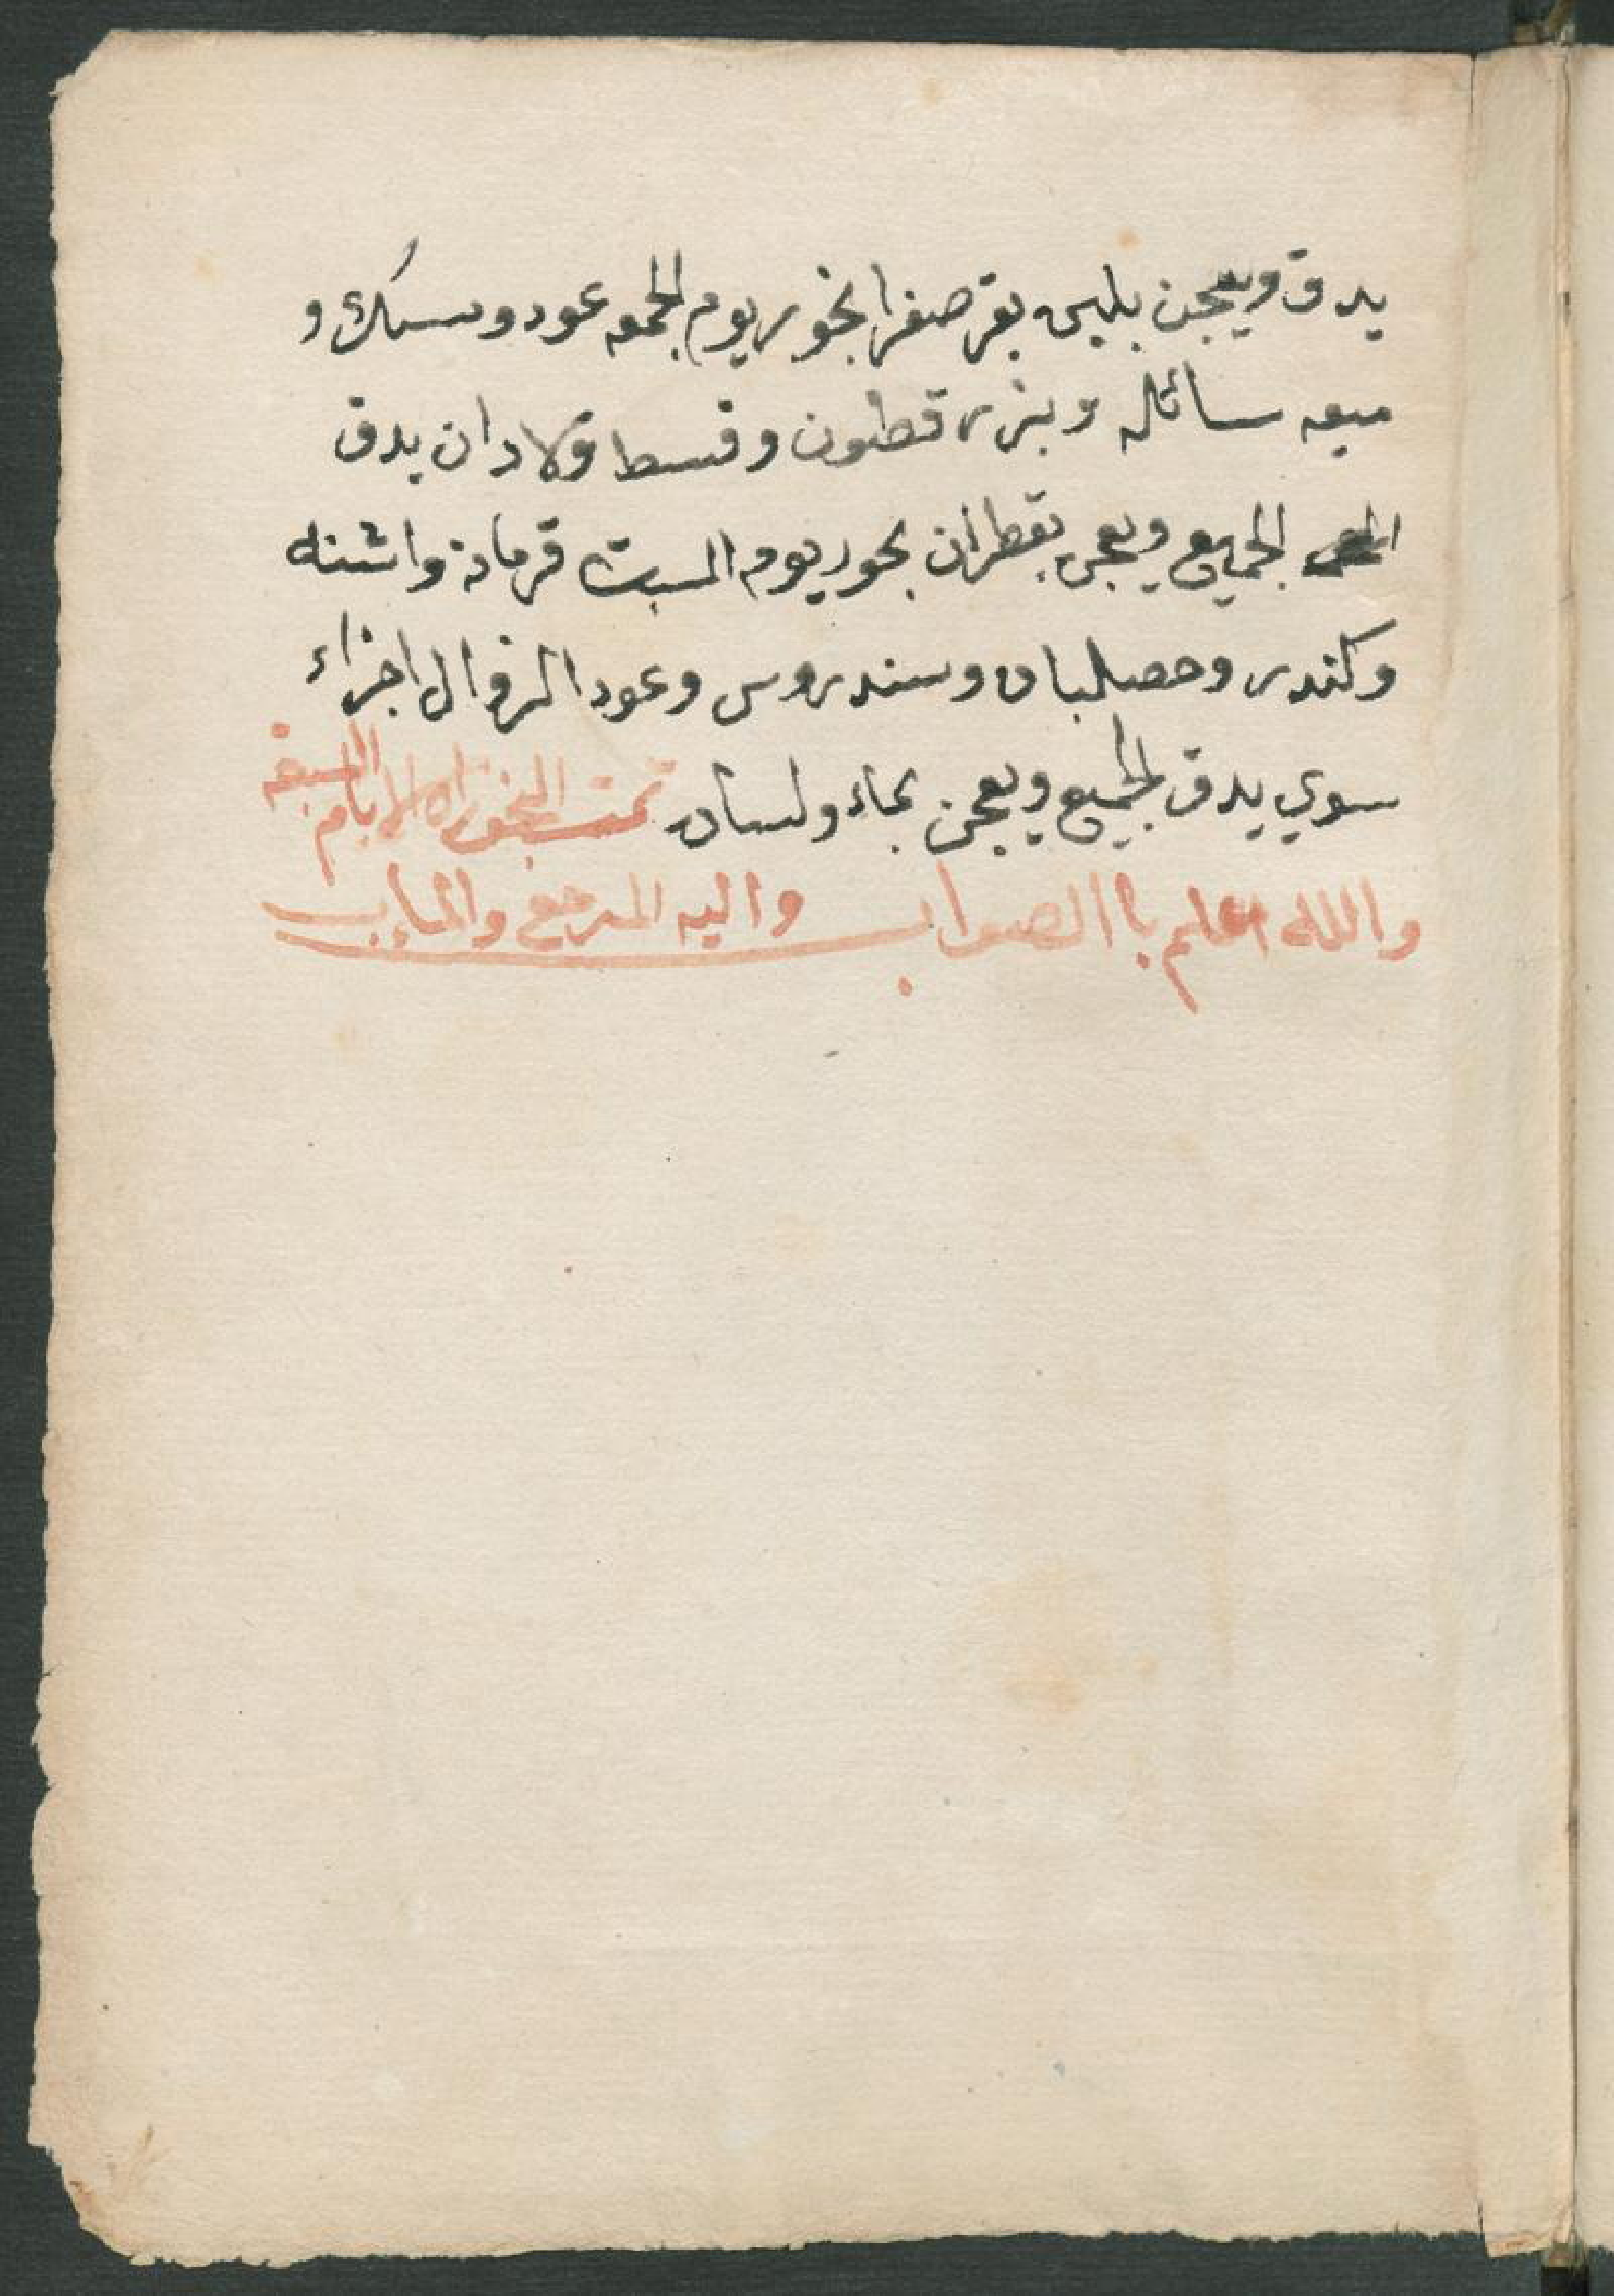 يدق ويعجن بلبن بقر صفرا بخور يوم الجمعه عود ومسك و
ميعه سائله وبزر قطون وقسط ولادان يدق
الجميع ويعجن بقطران بخور يوم السبت قرمانه واشنه
وكندر وحصلبان وسندروس وعود الزوال اجزاء
سوي يدق الجميع ويعجن بماء ولسان تمت البخورات الايام السبعه
والله اعلم باالصواب واليه المرجع والماب